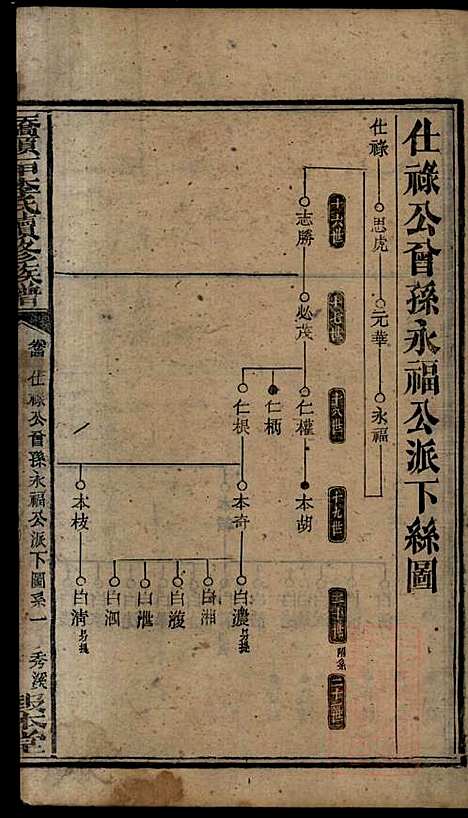 仕祿公曾孫永福公派下絲圖
仕祿
思虎
元華
永福
十六世
十七世
十八世
十九世
二十世
附系
二十一世
志勝
必茂
仁權
本胡
仁柄
仁根
本奇
本枝
白濃
另提
白湘
白澓
白泄
白泗
白清
另提
李氏續修族譜
仕祿公曾孫永福公派下圖系一
秀溪